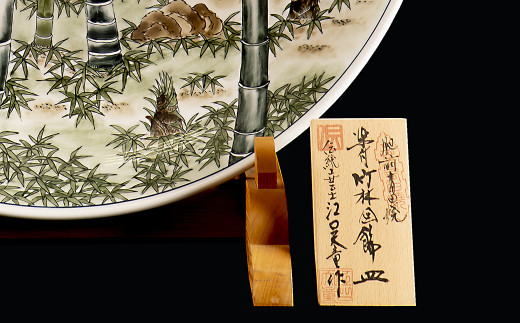 肥前有田焼
竹林画飾皿
伝統工芸士 江口天童作